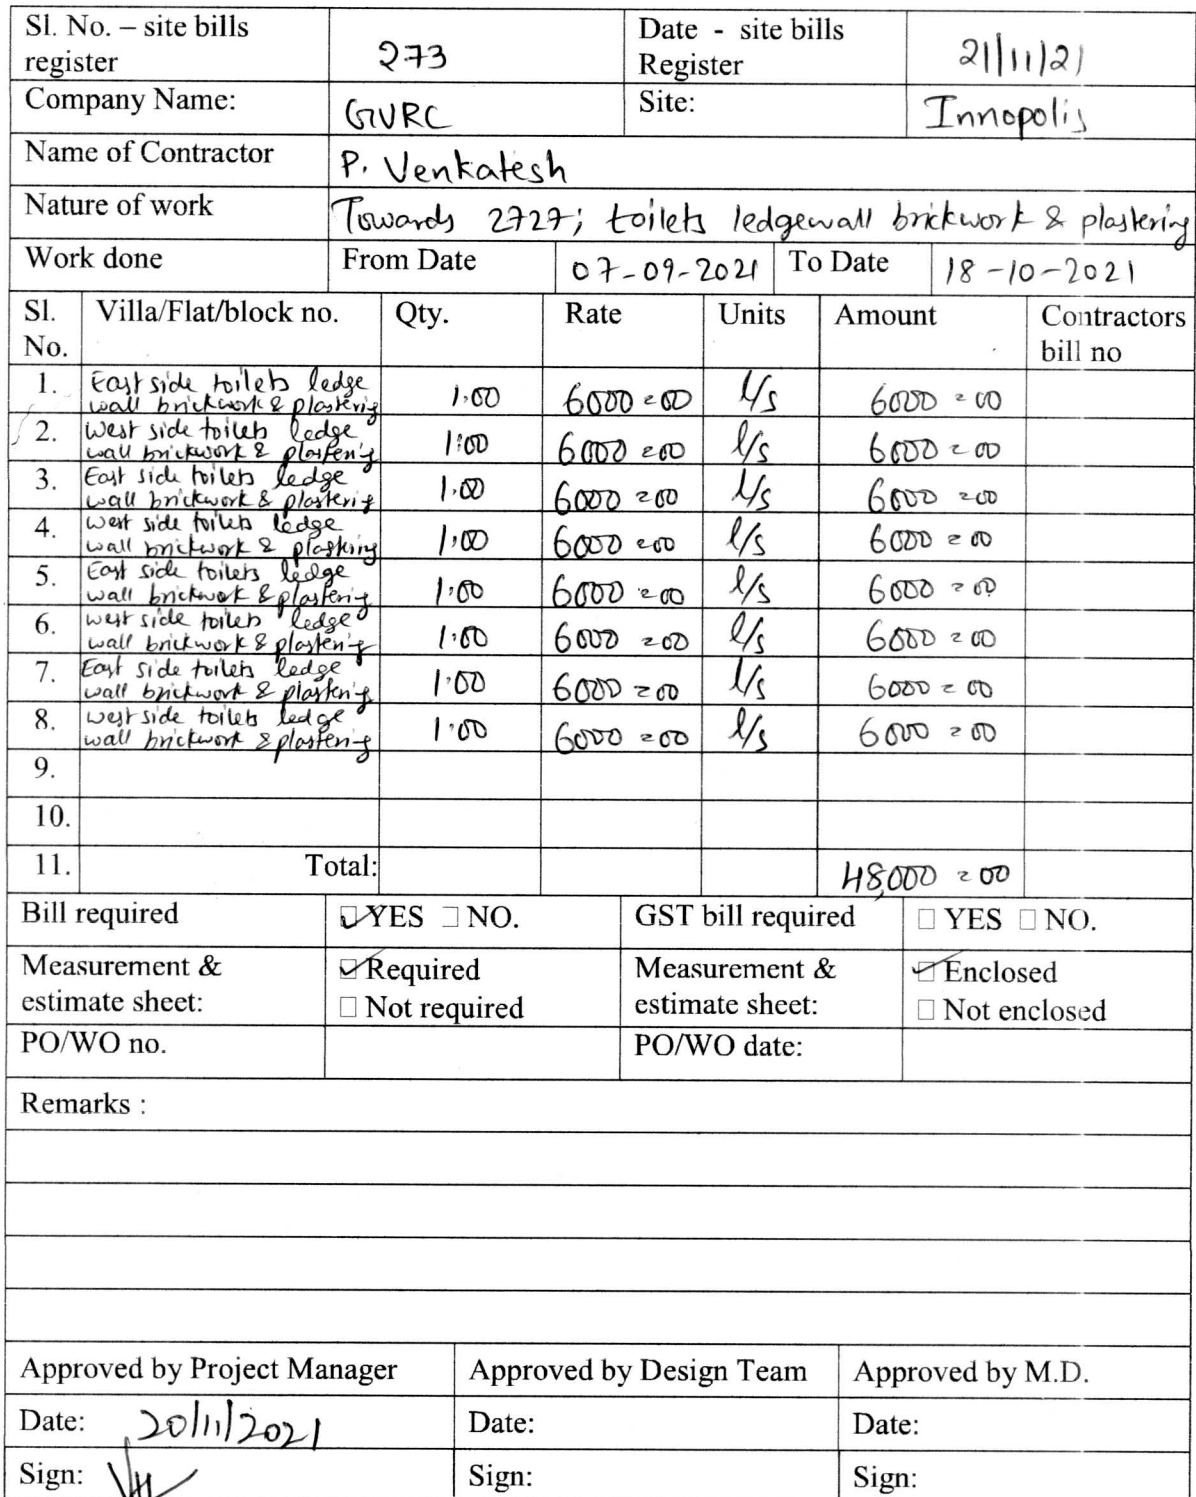 Sl. No. – site bills register 273 Date - site bills Register 21/11/21
Company Name: GVRC Site: Innopolis
Name of Contractor P. Venkatesh
Nature of work Towards 2727; toilets ledgewall brickwork & plastering
Work done From Date 07-09-2021 To Date 18-10-2021
Sl. No. Villa/Flat/block no. Qty. Rate Units Amount Contractors bill no
1. East side toilets ledge wall brickwork & plastering 1.00 6000=00 l/s 6000=00
2. West side toilets ledge wall brickwork & plastering 1:00 6000=00 l/s 6000=00
3. East side toilets ledge wall brickwork & plastering 1.00 6000=00 l/s 6000=00
4. West side toilets ledge wall brickwork & plastering 1.00 6000=00 l/s 6000=00
5. East side toilets ledge wall brickwork & plastering 1.00 6000=00 l/s 6000=00
6. West side toilets ledge wall brickwork & plastering 1.00 6000=00 l/s 6000=00
7. East side toilets ledge wall brickwork & plastering 1.00 6000=00 l/s 6000=00
8. West side toilets ledge wall brickwork & plastering 1.00 6000=00 l/s 6000=00
9.
10.
11. Total: 48,000=00
Bill required ☑ YES □ NO. GST bill required □ YES □ NO.
Measurement & estimate sheet: ☑ Required □ Not required Measurement & estimate sheet: ☑ Enclosed □ Not enclosed
PO/WO no. PO/WO date:
Remarks :
Approved by Project Manager Approved by Design Team Approved by M.D.
Date: 20/11/2021 Date: Date:
Sign: Sign: Sign: